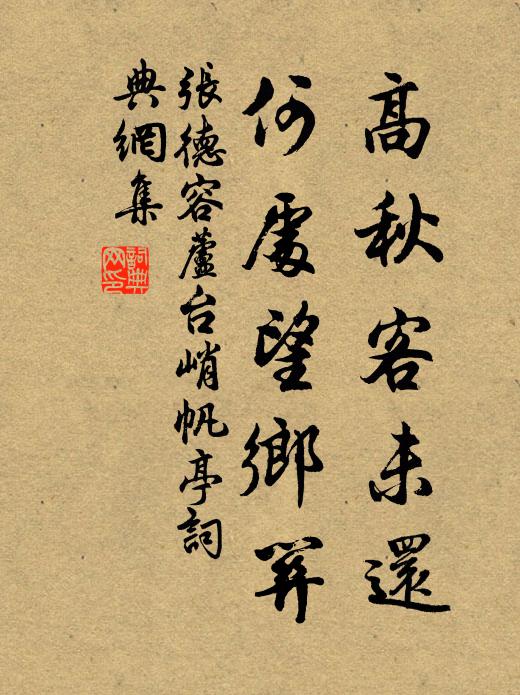 高秋客未還
何處望鄉關
張德容蘆台峭帆亭詞
典網集
詞典
网印